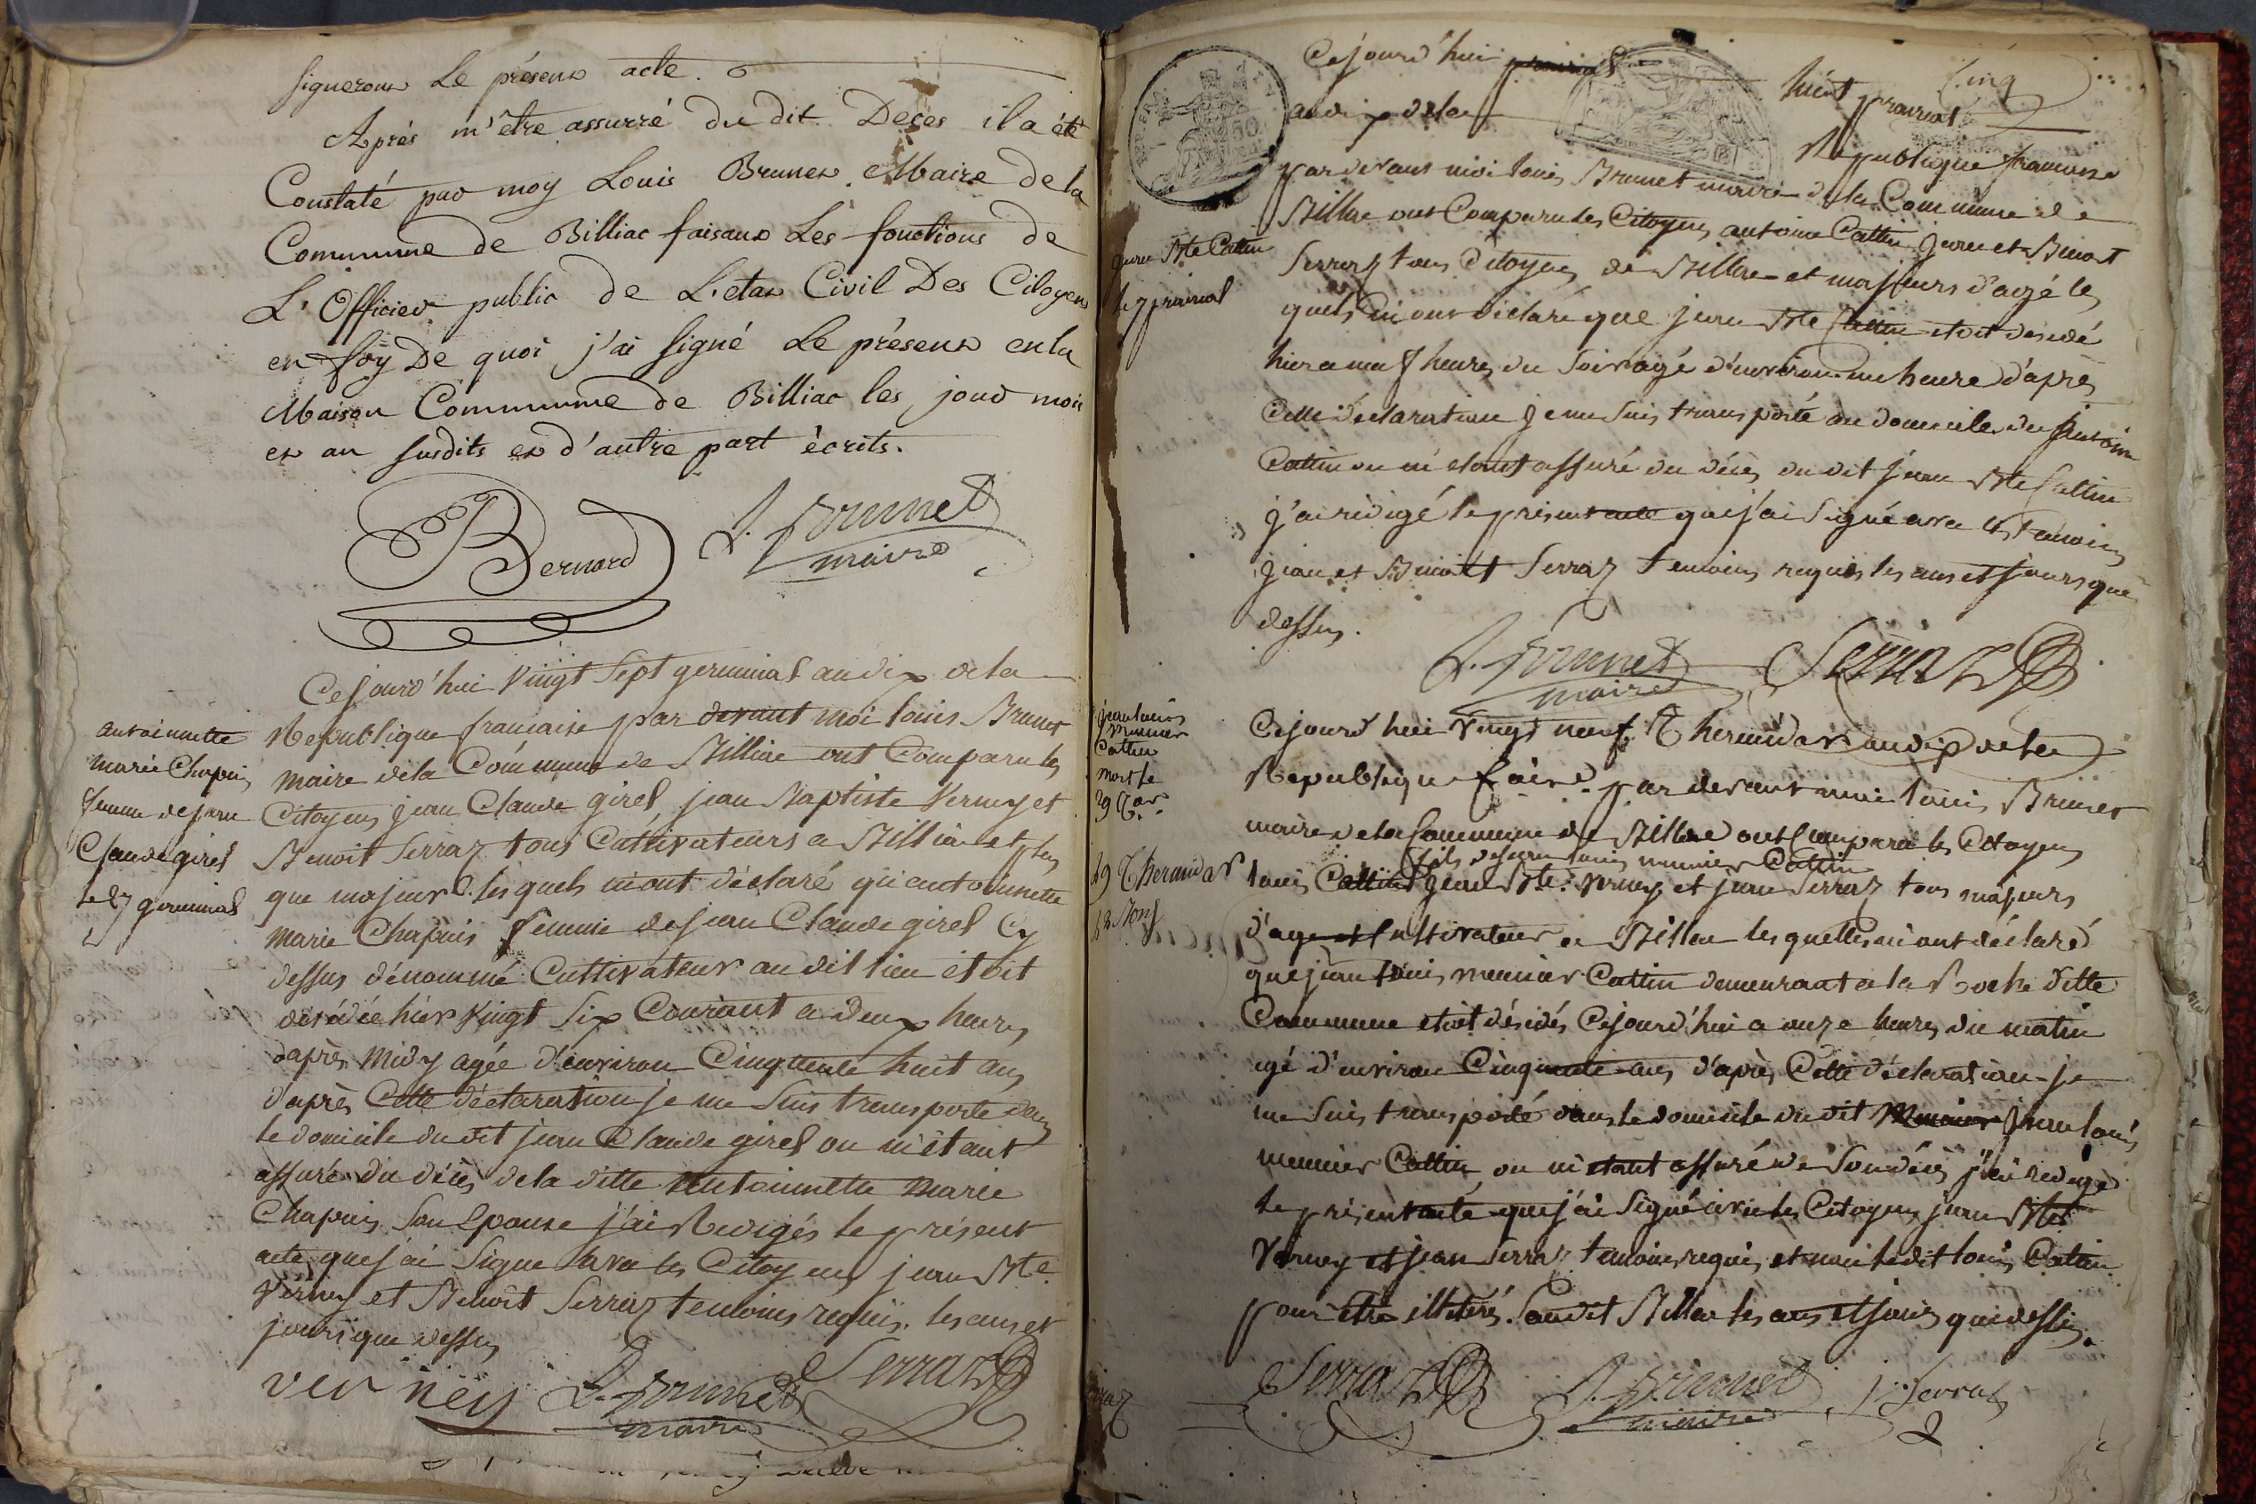 signerons Le présent acte.
Après m'etre assurré du dit Deces il a été
Constaté par moy Louis Brunet Maire de la
Commune de Billiac faisant Les fonctions de
L'Officier public de L'etat Civil Des Citoyens
en foy De quoi j'ai signé Le présent en la
Maison Commune de Billiac les jour mois
et an susdits et d'autre part écrits.
Bernard L. Brunet
maire
Cejourd'hui vingt sept germinal an dix de la
Republique francaise par devant moi louis Brunet
maire de la Commune de Billiac ont Comparu les
Citoyens jean Claude girel, jean Baptiste Verney et
Benoit Serraz tous Cultivateurs a Billiac et plus
que majeur lesquels m'ont déclaré qu'antoinette
marie Chapuis femme de jean Claude girel Cy
dessus dénommé Cultivateur au dit lieu étoit
décédée hier vingt six Courant a deux heures
d'après midy agée d'environ Cinquente huit ans
d'après Cette déclaration je me suis transporté dans
le domicile du dit jean Claude girel ou m'étant
assuré du décès de la ditte antoinette marie
Chapuis son Epouse j'ai Redigés le présent
acte que j'ai signé avec les Citoyens jean Bte
Verney et Benoit Serraz temoins requis. les ans et
jours que dessus
antoinette
marie Chapuis
femme de jean
Claude girel
le 27 germinal
ver ney L. Brunet Serraz
maire
Cejourd'hui prairial huit prairial Cinq
an dix de la Republique francaise
par devant moi louis Brunet maire de la Commune de
Billiac ont Comparu les Citoyens antoine Cattin jean et Benoit
Serraz tous Citoyens de Billiac et majeurs d'agé les
quels m'ont déclaré que jean Bte Cattin etoit décedé
hier a neuf heures du soir agé d'environ une heure d'après
Cette déclaration je me suis transporté au domicile du antoine
Cattin ou m'etant assuré du décès du dit jean Bte Cattin
j'ai rédigé le présent acte que j'ai signé avec les témoins
jean et Benoit Serraz temoins requis les ans et jours que
dessus.
jean Bte Cattin
le 7 prairial
L. Brunet Serraz
maire
Cejourd'hui vingt neuf Thermidor an dix de la
Republique faise par devant moi louis Brunet
maire de la Commune de Billiac ont Comparu les Citoyens
fils de jean louis meunier Cattin
louis Cattin jean Bte Verney et jean Serraz tous majeurs
d'age et Cultivateur a Billiac lesquelles m'ont déclaré
que jean louis meunier Cattin demeurant a la Roche ditte
Commune etoit décédés Cejourd'hui a onze heures du matin
agé d'environ Cinquante ans d'après Cette déclaration je
me suis transporté dans le domicile du dit Meunier jean louis
meunier Cattin, ou m'etant assuré de son décès j'ai redigé
le présent acte que j'ai signé avec les Citoyens jean Bte
Verney et jean Serraz temoins requis, et non le dit louis Cattin
pour etre illiteré. audit Billiac les ans et jours que dessus.
jean louis
meunier
Cattin
mort le
29 Thermidor
Serraz L. Brunet j Serraz
maire